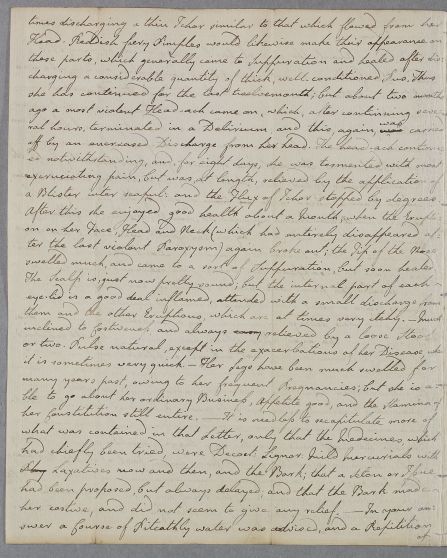 times discharging a thin Ichor similar to that which flowed from her
Head. Reddish fiery Pimples would likewise make their appearance on
those parts, which generally came to Suppuration and healed after dis
charging a considerable quantity of thick, well conditioned Pus. Thus
she has continued for the last twelvemonth; but about two months
ago a most violent Head-ach came on, which, after continuing seve
ral hours, terminated in a Delirium and this, again, was carried
off by an encreased Discharge from her head. The head-ach continu
ed notwithstanding, and, for eight days, she was tormented with most
excruciating pain, but was, at length, relieved by the application of
a Blister inter scapul: and the Flux of Ichor stopped by degrees
After this she enjoyed good health about a Month, when the Erupti
on on her Face, Head and Neck (which had entirely disappeared af
ter the last violent Paroxysm) again broke out; the Tip of the Nose
swelled much, and came to a sort of Suppuration, but soon healed
The Scalp is, just now pretty sound; but the internal part of each
eyelid is a good deal inflamed, attended with a small discharge from
them and the other Eruptions, which are at times very itchy. — Is much
inclined to costiveness and always relieved by a loose Stool
or two. Pulse natural, except in the exacerbations of her Disease when
it is sometimes very quick. — Her Legs have been much swelled for
many years past, owing to her frequent Pregnancies; but she is a
ble to go about her ordinary Business, Appetite good, and the Stamina of
her Constitution still entire. — It is needless to recapitulate more of
what was contained in that Letter, only that the Medecines which
had chiefly been tried, were Decoct: Lignor: Mild mercurials with
Laxatives now and then, and the Bark; that a Seton or Issue
had been proposed, but always delayed, and that the Bark made
her costive, and did not seem to give any relief. — In your an:
swer a Course of Pitcathly water was advised, and a Repetition
of